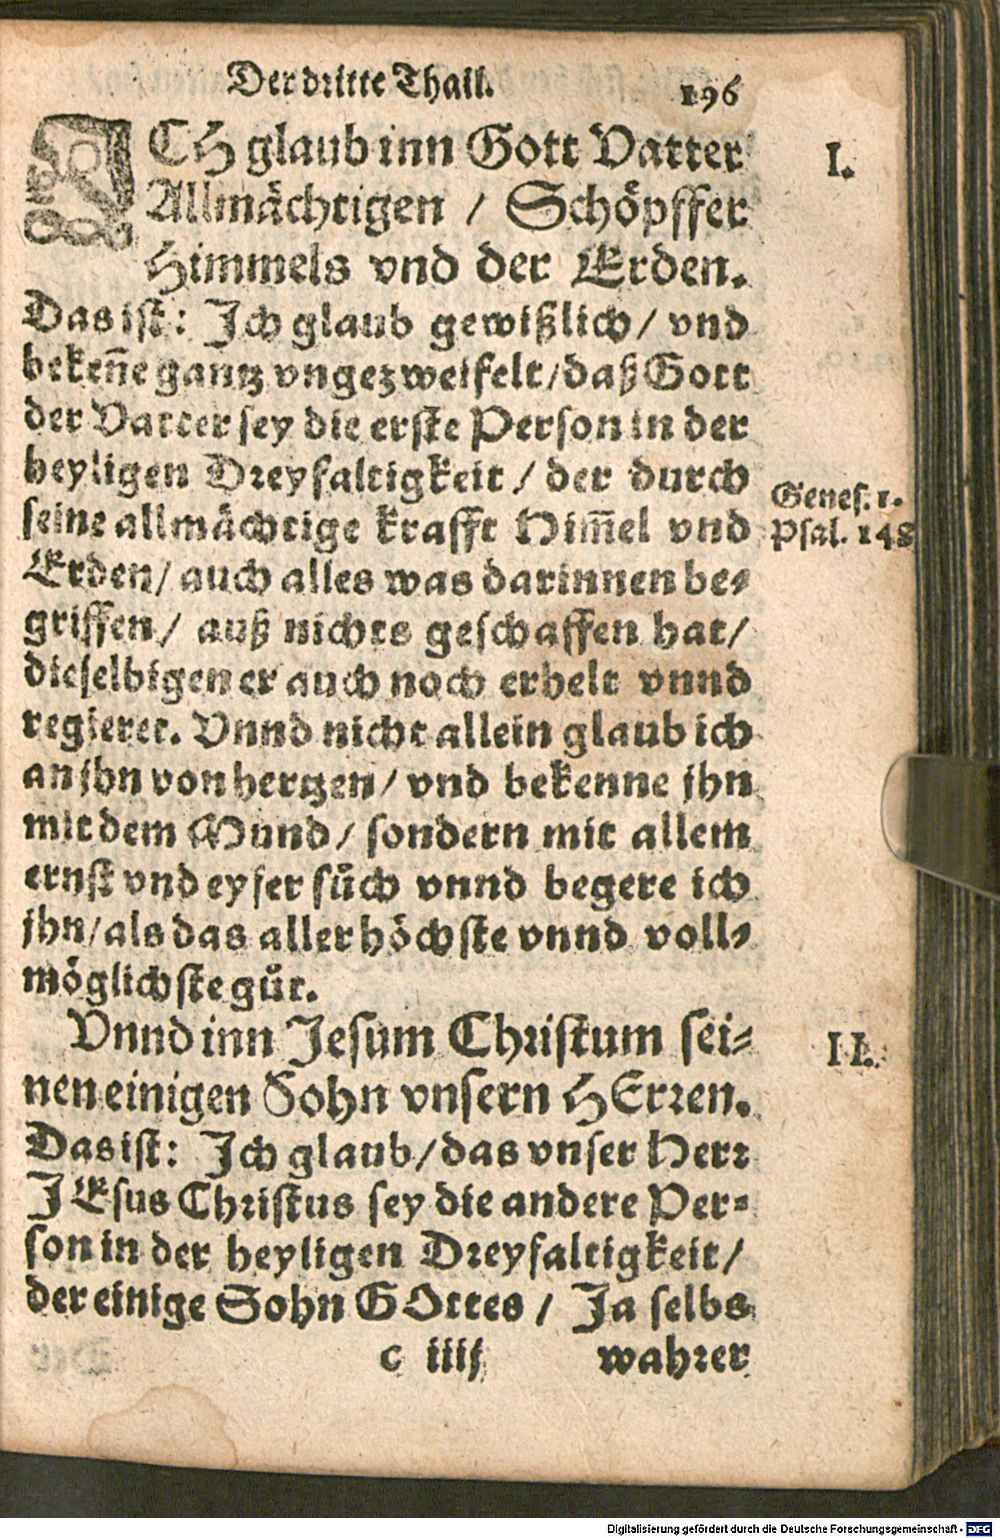 Der dritte Thail. 196
ICH glaub inn Gott Vatter I.
Allmächtigen / Schöpffer
Himmels vnd der Erden.
Das ist: Ich glaub gewißlich / vnd
bekeñe gantz vngezweifelt / daß Gott
der Vatter sey die erste Person in der
heyligen Dreyfaltigkeit / der durch
seine allmächtige krafft Him̃el vnd
Genes. 1.
Psal. 148
Erden / auch alles was darinnen be-
griffen / auß nichts geschaffen hat /
dieselbigen er auch noch erhelt vnnd
regieret. Vnnd nicht allein glaub ich
an jhn von hertzen / vnd bekenne jhn
mit dem Mund / sondern mit allem
ernst vnd eyfer sůch vnnd begere ich
jhn / als das aller höchste vnnd voll-
möglichste gůt.
Vnnd inn Jesum Christum sei- II.
nen einigen Sohn vnsern HErren.
Das ist: Ich glaub / das vnser Herr
JEsus Christus sey die andere Per-
son in der heyligen Dreyfaltigkeit /
der einige Sohn GOttes / Ja selbs
c iiij wahrer
Digitalisierung gefördert durch die Deutsche Forschungsgemeinschaft - DFG